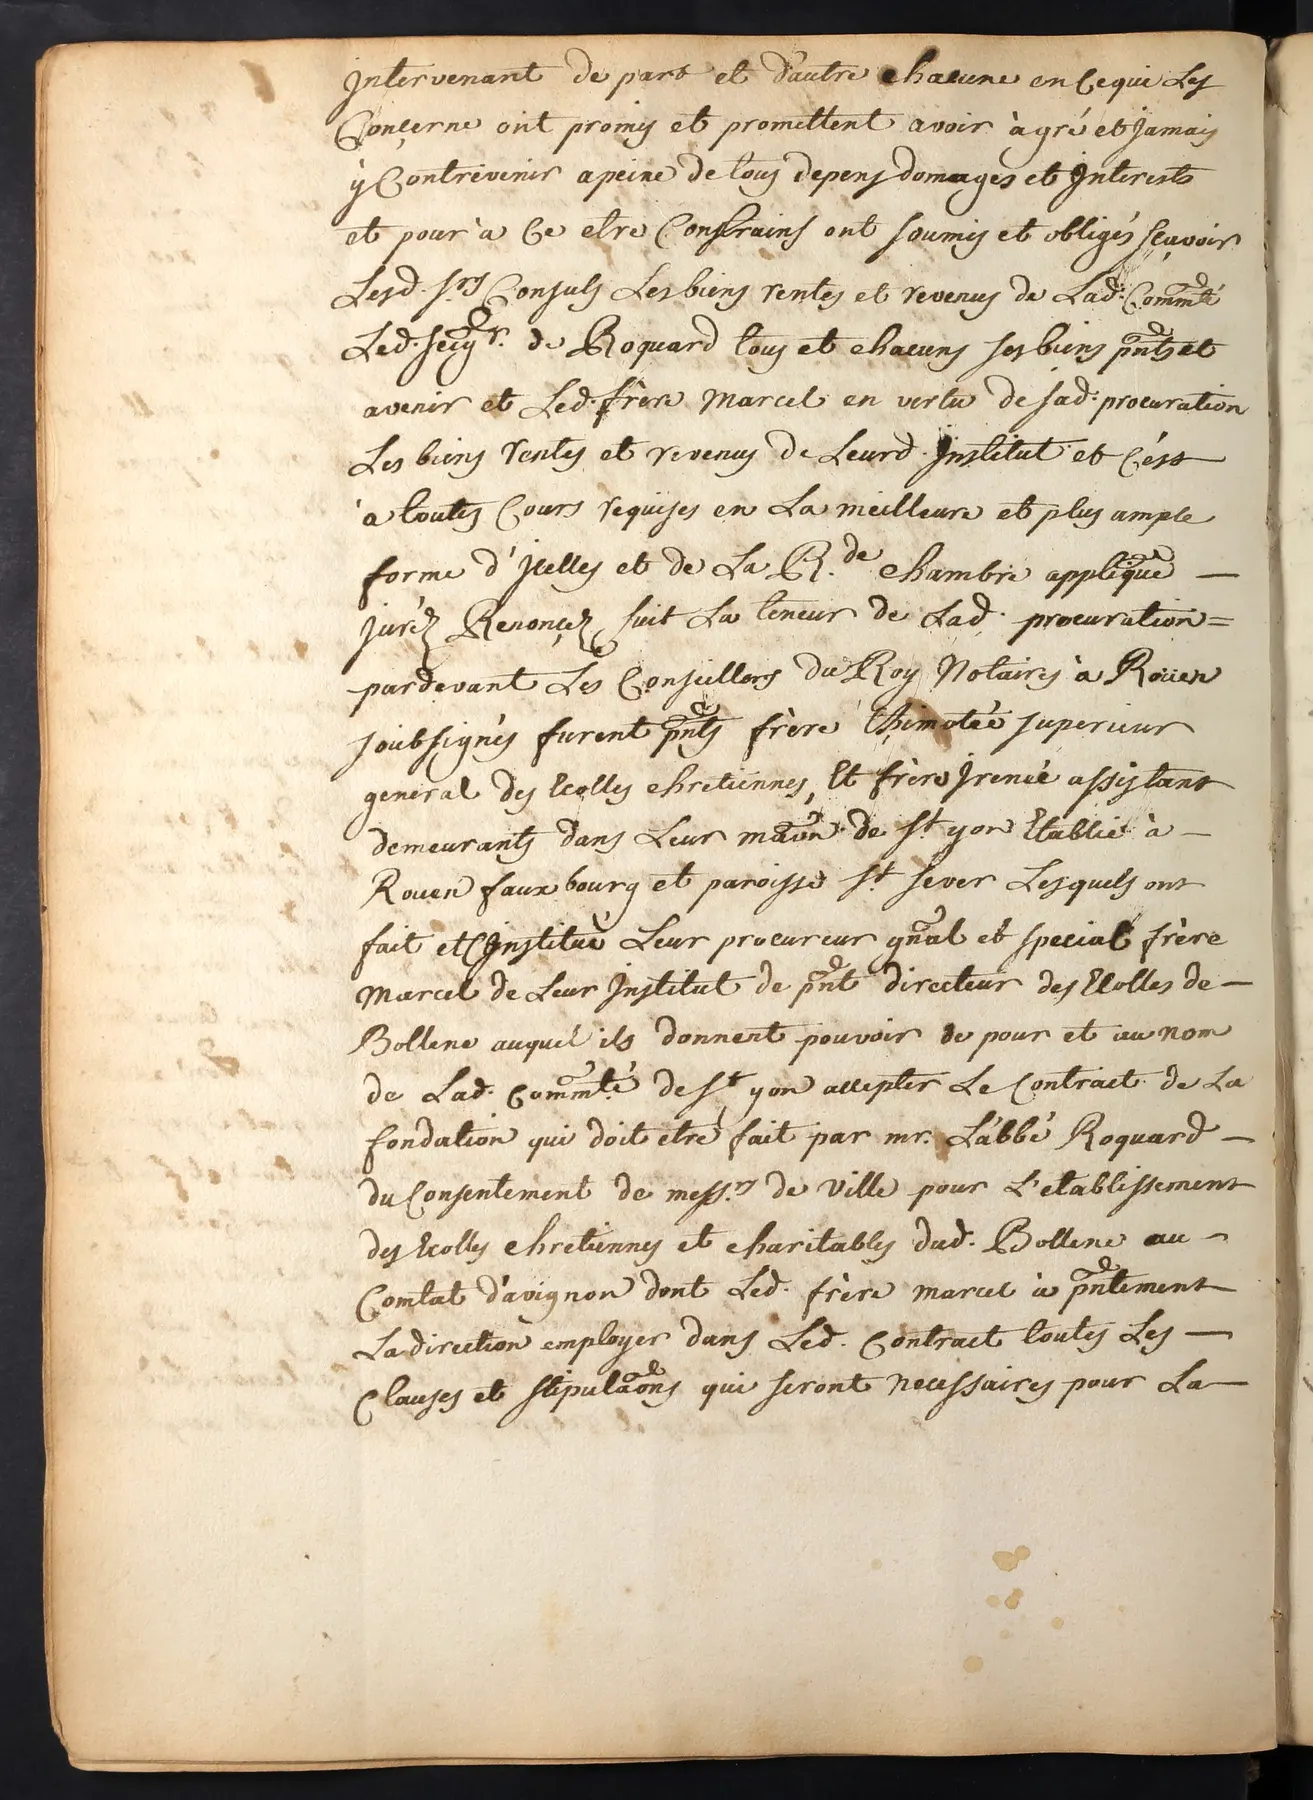 intervenant de part et d'autre chacune en ce qui les
Conçerne ont promis et promettent avoir à gré et jamais
ÿ Contrevenir a peine de tous depens domages et Interests
et pour à Ce etre Constrains ont soumis et obligés sçavoir
Lesd. srs Consuls Les biens rentes et revenus de Lad. Commté
Led. seigr. de Roquard tous et chacuns ses biens pnts et
avenir et Led. frère Marcel en vertu de sad. procuration
Les biens rentes et revenus de Leurd. Institut et C'ést
à toutes Cours requises en La meilleure et plus ample
forme d'Icelles et de La R.de Chambre appliqué —
juréz Renonçéz suit La teneur de Lad. procuration =
pardevant Les Conseillers du Roy Notaires à Roüen
soubsignés furent pnts frère thimotée superieur
general des Ecolles chretiennes, Et frère Irenée assistant
demeurants dans Leur maon de St yon Etablie à —
Rouen faux bourg et paroisse St sever Lesquels ont
fait et Institué Leur procureur gnal et special frère
Marcel de Leur Institut de pnt directeur des Ecolles de —
Bollene auquel ils donnent pouvoir de pour et au nom
de Lad. Commté de St yon accepter Le Contract de La
fondation qui doit etre fait par mr. L'abbé Roquard —
du Consentement de messrs de Ville pour L'etablissement
des Ecolles chretiennes et charitables dud. Bollene au —
Comtat d'avignon dont Led. frère marcel à pntement
La direction employer dans Led. Contract toutes Les —
Clauses et stipulaons qui seront necessaires pour La —